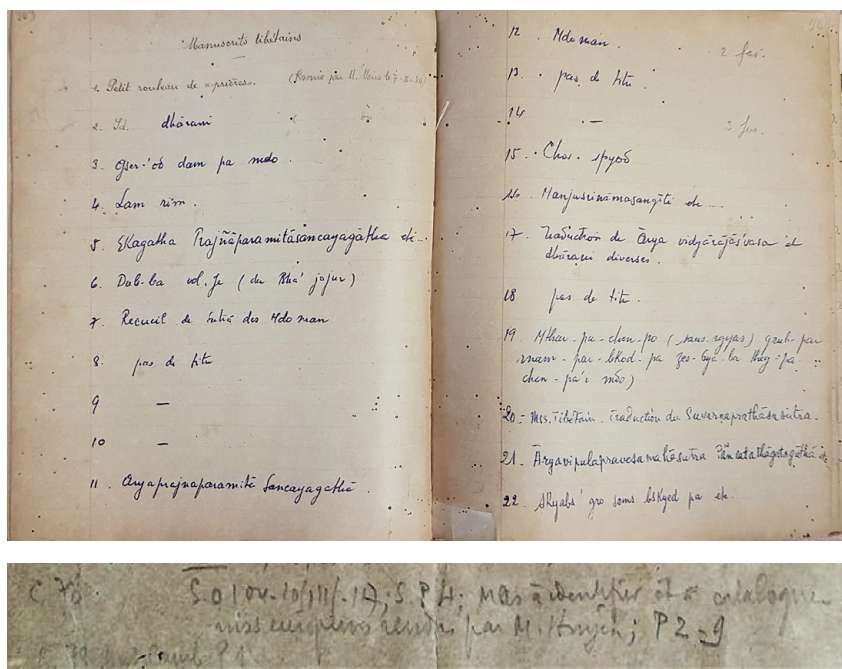 Manuscrits tibétains
1. Petit rouleau de "prières". (Remis par M.
2. Id. dhāraṇī
3. gser-'od dam pa mdo
4. Lam rim.
5. Ekagatha Prajñāparamitāsancayagāthā etc...
6. Dub-ba vol. Je (du Bka' 'jujur)
7. Recueil de sutra des Mdo man
8. pas de titre
9 —
10 —
11. Āryaprajnaparamitā Sancayagathā.
12. Mdo man. 2 fas.
13. pas de titre.
14 — 3 fas.
15. Chos. spyod
16. Manjusrināmasangīti etc...
17. Traduction de Ārya vidjārājāśvasa et
dhāraṇi diverses.
18 pas de titre.
19. Mthar-pa-chen-po (sans-rgyas) grub-par
rnam-par-bkod-pa zes-bya-ba theg-pa-
chen-pa'i mdo)
20.- Mss. Tibétain. Traduction du Suvarṇaprathāsasūtra.
21. Āryavipulapravesamahāsutra Pāncatathāgatagāthā
22. sKyabs 'gro sems bskyed pa etc.
C 76. mss à identifier et à cataloguer
mss européens rendus par M. P 2-9